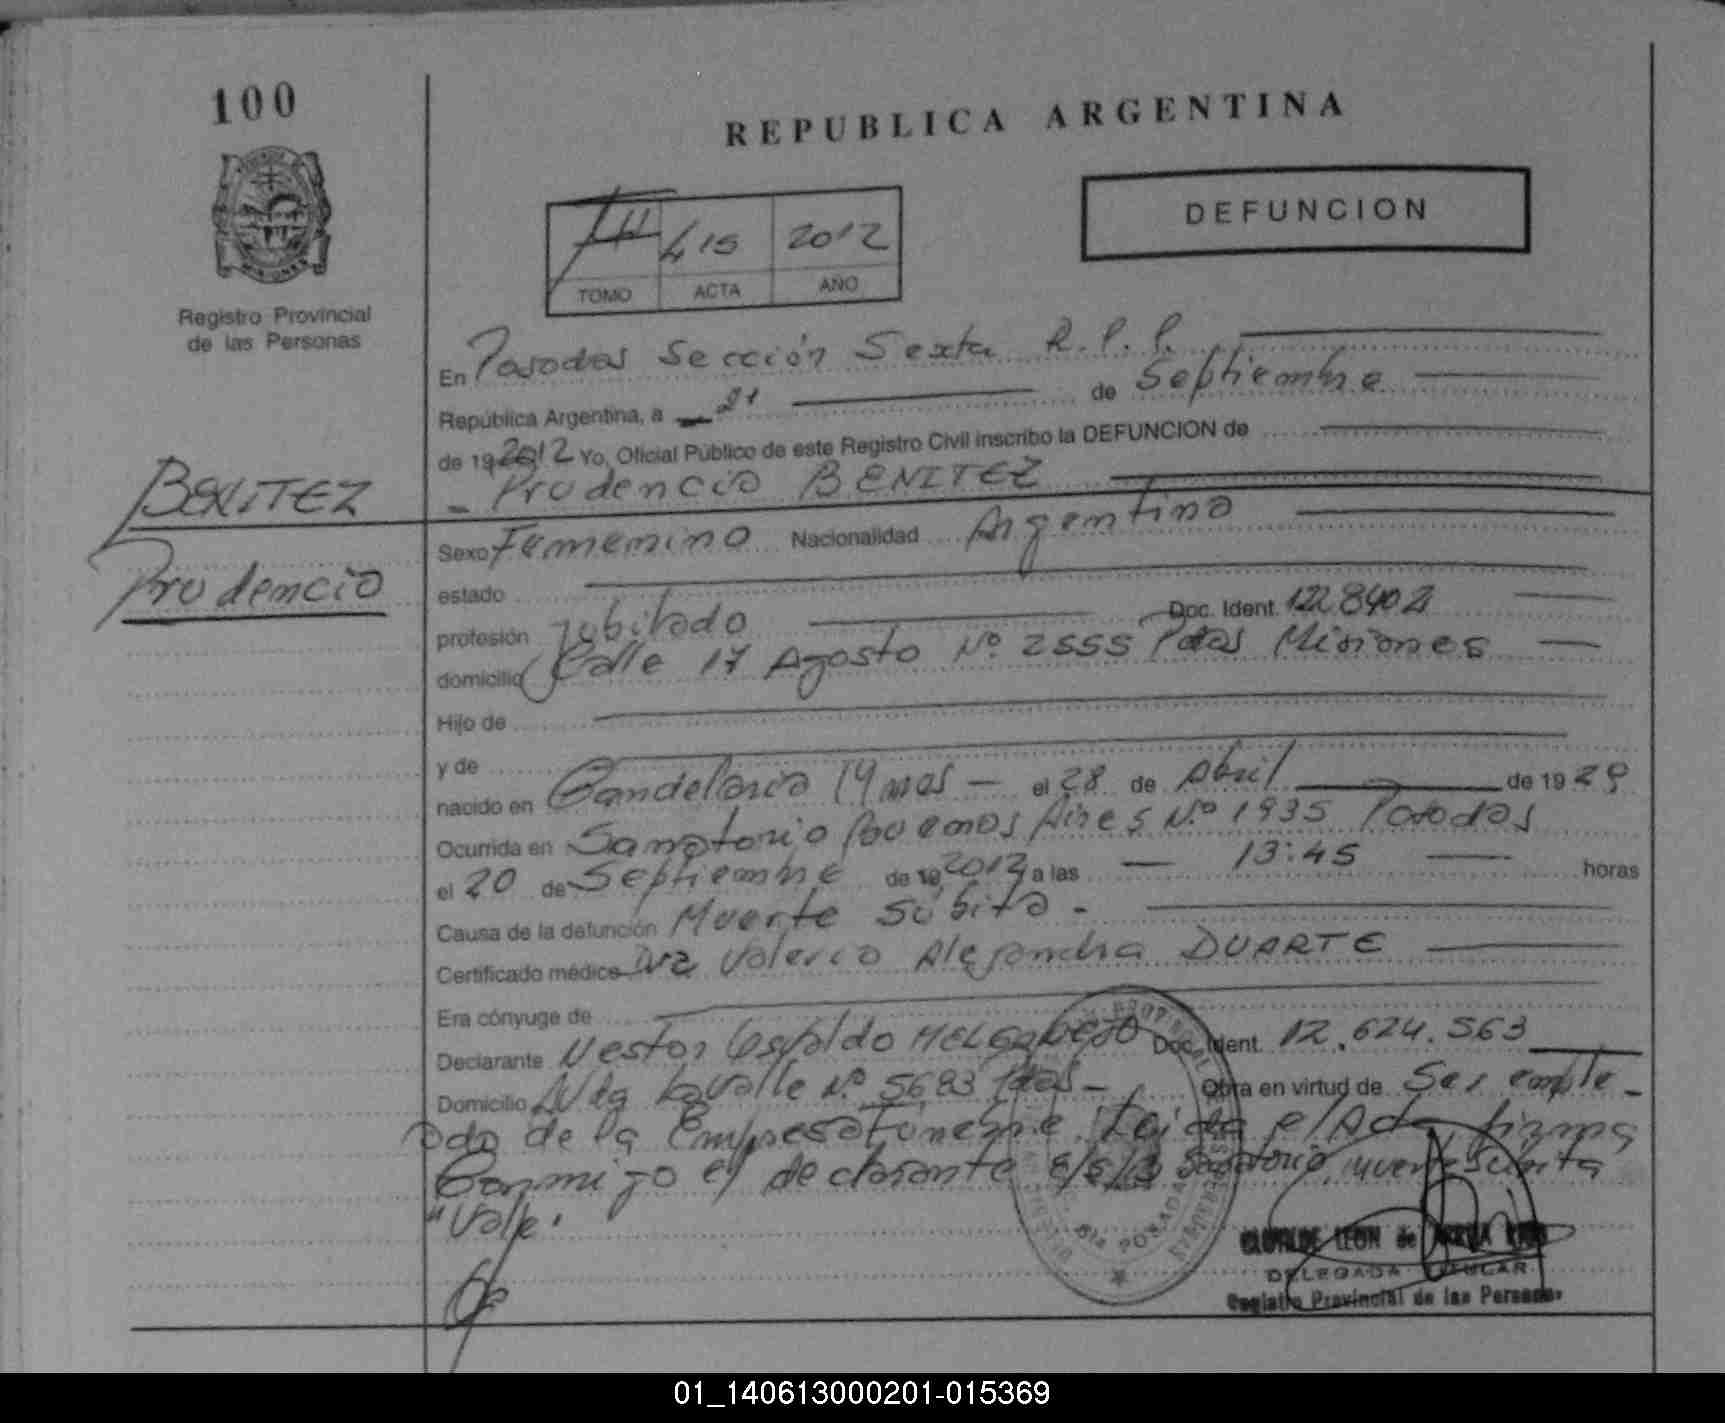 100
REPUBLICA ARGENTINA
DEFUNCION
415 2012
TOMO ACTA AÑO
MISIONES
Registro Provincial
de las Personas
En Posadas Sección Sexta R.P.P.
República Argentina, a 21 de Septiembre
de 19 2012 Yo, Oficial Público de este Registro Civil inscribo la DEFUNCION de
Prudencio BENITEZ
BENITEZ
Prudencio
Sexo Femenino Nacionalidad Argentina
estado
profesión Jubilado Doc. Ident.
domicilio Calle 17 Agosto Nº 2555 Pdas Misiones
Hijo de
y de
nacido en Candelaria Mnes - el 28 de Abril de 19 29
Ocurrida en Sanatorio Buenos Aires Nº 1935 Posadas
el 20 de Septiembre de 19 2012 a las 13:45 horas
Causa de la defunción Muerte Súbita -
Certificado médico Dra Valeria Alejandra DUARTE
Era cónyuge de
Declarante Nestor Osvaldo MELGAREJO Doc. Ident. 12.624.563
Domicilio Avda Lavalle Nº 5683 Pdas - Obra en virtud de Ser emple-
ado de la Empresa fúnebre. Leida el Acta, firma
Conmigo el declarante Sanatorio, muerte Subita
"Vale".
6ta POSADAS
CLOTILDE LEON de
DELEGADA TITULAR
Registro Provincial de las Personas
01_140613000201-015369